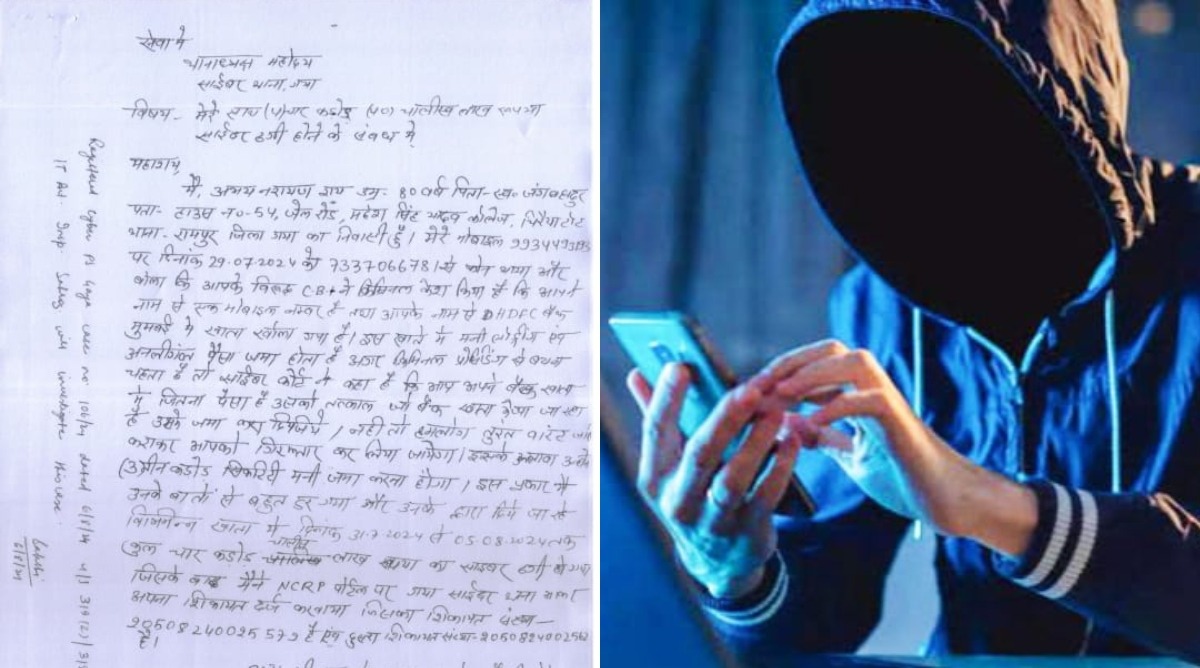 सेवा में
थानाध्यक्ष महोदय
साईबर थाना, गया
विषय - मेरे साथ (4) चार करोड़ (40) चालीस लाख रूपया
साईबर ठगी होने के संबंध में
महाशय,
मैं, अभय नरायण राय उम्र- 80 वर्ष पिता- स्व० जंगबहादुर
पता- हाउस न०-54, जेल रोड, महेश सिंह यादव कॉलेज,
थाना- रामपुर जिला गया का निवासी हूँ। मेरे मोबाइल
पर दिनांक 29.07.2024 को 7337066781 से फोन आया और
बोला कि आपके विरूद्ध CBI ने क्रिमिनल केश किया है कि आपके
नाम से एक मोबाइल नम्बर है तथा आपके नाम से HDFC बैंक
मुम्बई में खाता खोला गया है। इस खाते में मनी
पैसा जमा होता है अगर क्रिमिनल प्रोसिडिंग से बचना
चाहता है तो साईबर कोर्ट ने कहा है कि आप अपने बैंक खाता
में जितना पैसा है उसको तत्काल जो बैंक खाता
है उसमे जमा करा दिजिये, नहीं तो हमलोग तुरंत वारंट
कराकर आपको गिरफ्तार कर लिया जायेगा। इसके अलावा
(3) तीन करोड सिकरिटी मनी जमा करना होगा। इस प्रकार मैं
उनके बातों से बहुत डर गया और उनके द्वारा दिये जा रहे
विभिन्न खाता में दिनांक 31.7.2024 से 05.08.2024 तक
कुल चार करोड चालीस लाख रूपया का साइबर ठगी
जिसके बाद मैंने NCRP पोर्टल पर गया साईबर थाना आकर
अपना शिकायत दर्ज करवाया जिसका शिकायत संख्या-
है एवं दुसरा शिकायत संख्या-
है।
Registered Cyber PS Gaya case no 106/24 dated 6/8/24 u/s
IT Act. Insp. will investigate this case.